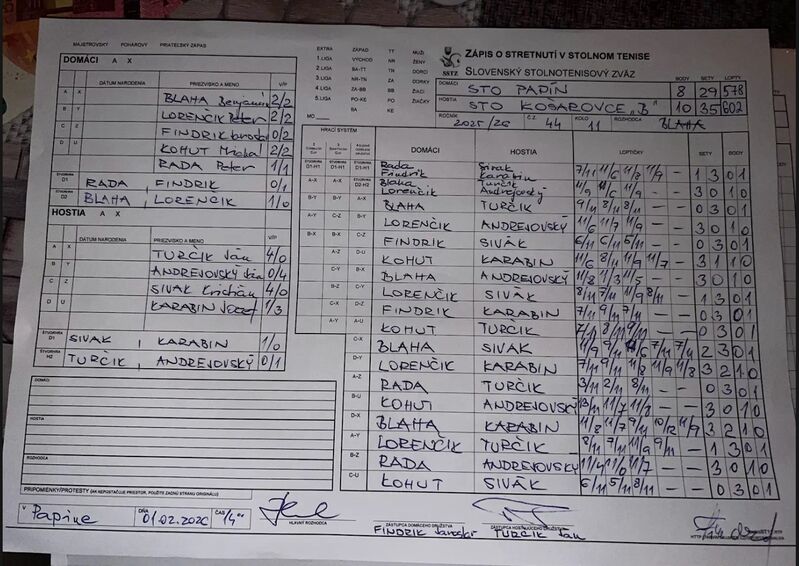 MAJSTROVSKÝ POHÁROVÝ PRIATEĽSKÝ ZÁPAS
DOMÁCI A X
DÁTUM NARODENIA PRIEZVISKO A MENO V/P
A X BLAHA Benjamín 2/2
B Y LORENČIK Peter 2/2
C Z FINDRIK Jaroslav 0/2
D U KOHUT Michal 2/2
RADA Peter 1/1
ŠTVORHRA D1 RADA / FINDRIK 0/1
ŠTVORHRA D2 BLAHA / LORENČIK 1/0
HOSTIA A X
DÁTUM NARODENIA PRIEZVISKO A MENO V/P
A X TURČIK Ján 4/0
B Y ANDREJOVSKÝ Ján 0/4
C Z SIVÁK Kristián 4/0
D U KARABIN Jozef 1/3
ŠTVORHRA D1 SIVAK / KARABIN 1/0
ŠTVORHRA H2 TURČIK / ANDREJOVSKÝ 0/1
DOMÁCI
HOSTIA
ROZHODCA
PRIPOMIENKY/PROTESTY (AK NEPOSTAČUJE PRIESTOR, POUŽITE ZADNÚ STRANU ORIGINÁLU)
V Papine DŇA 01.02.2026 ČAS 14°°
HLAVNÝ ROZHODCA
ZÁSTUPCA DOMÁCEHO DRUŽSTVA
FINDRIK Jaroslav
ZÁSTUPCA HOSŤUJÚCEHO DRUŽSTVA
TURČIK Ján
EXTRA ZÁPAD TT MUŽI
1.LIGA VÝCHOD NR ŽENY
2.LIGA BA-TT TN DORCI
3.LIGA NR-TN ZA DORKY
4.LIGA ZA-BB BB ŽIACI
5.LIGA PO-KE PO ŽIAČKY
BA KE
MO
SSTZ
ZÁPIS O STRETNUTÍ V STOLNOM TENISE
SLOVENSKÝ STOLNOTENISOVÝ ZVÄZ
BODY SETY LOPTY
DOMÁCI STO PAPÍN 8 29 578
HOSTIA STO KOŠAROVCE "B" 10 35 602
ROČNÍK 2025/26 Č.Z. 44 KOLO 11 ROZHODCA BLAHA
HRACÍ SYSTÉM DOMÁCI HOSTIA LOPTIČKY SETY BODY
D1-H1 D1-H1 Rada Findrik Sivak Karabin 7/11 11/6 8/11 9/11 - 1 3 0 1
A-X D2-H2 Blaha Lorenčik Turčik Andrejovský 3 0 1 0
B-Y B-Y A-X BLAHA TURČIK 9/11 8/11 8/11 - - 0 3 0 1
A-Y C-Z B-Y LORENČIK ANDREJOVSKÝ 11/6 11/7 11/9 - - 3 0 1 0
B-X B-X C-Z FINDRIK SIVÁK 6/11 6/11 5/11 - - 0 3 0 1
A-Z D-U KOHUT KARABIN 11/6 8/11 11/9 11/7 - 3 1 1 0
C-Y B-X BLAHA ANDREJOVSKÝ 11/8 11/3 11/5 - - 3 0 1 0
B-Z C-Y LORENČIK SIVÁK 8/11 7/11 11/9 8/11 - 1 3 0 1
C-X D-Z FINDRIK KARABIN 7/11 9/11 7/11 - - 0 3 0 1
A-Y A-U KOHUT TURČIK 7/11 8/11 8/11 - - 0 3 0 1
C-X BLAHA SIVAK 2 3 0 1
D-Y LORENČIK KARABIN 3 2 1 0
A-Z RADA TURČIK 3/11 2/11 8/11 - - 0 3 0 1
B-U KOHUT ANDREJOVSKÝ 3 0 1 0
D-X BLAHA KARABIN 11/8 11/7 9/11 10/12 11/9 3 2 1 0
A-Y LORENČIK TURČIK 8/11 7/11 11/9 9/11 - 1 3 0 1
B-Z RADA ANDREJOVSKÝ 11/4 11/6 11/7 - - 3 0 1 0
C-U KOHUT SIVÁK 6/11 5/11 8/11 - - 0 3 0 1